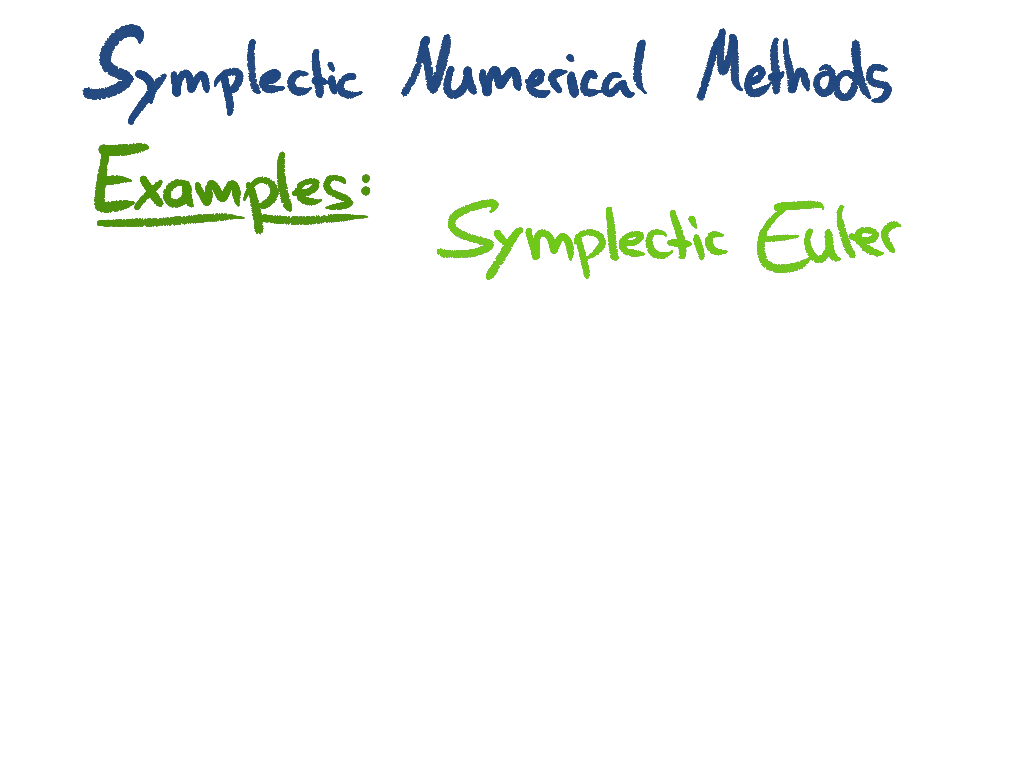 Symplectic Numerical Methods
Examples:
Symplectic Euler